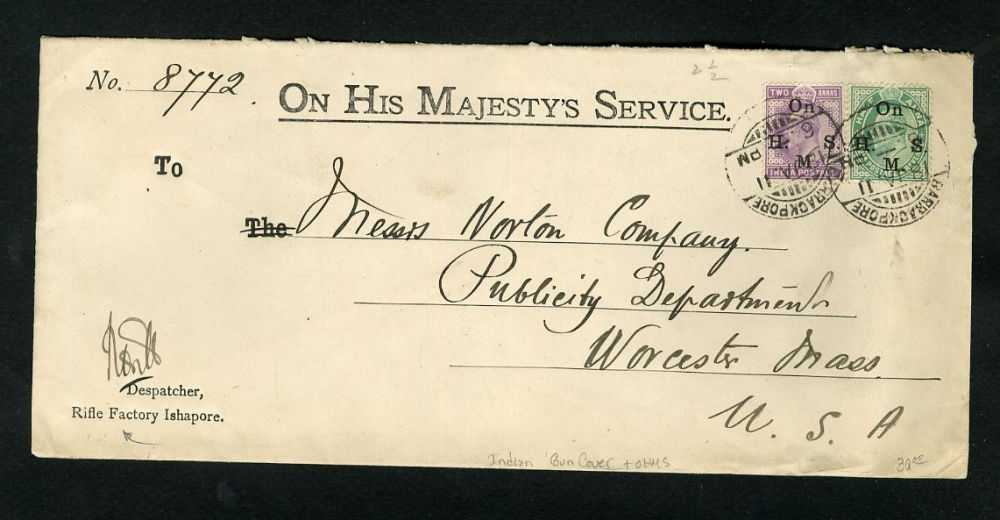 No. 8772.
2 1/2
ON HIS MAJESTY'S SERVICE.
TWO ANNAS
On
H. S.
M
INDIA POSTAGE
On
H. S.
M
BARRACKPORE
BARRACKPORE
To
The Messrs Norton Company.
Publicity Department
Worcester Mass
U. S. A
Despatcher,
Rifle Factory Ishapore.
Indian Gun Cover + OHMS
30.00